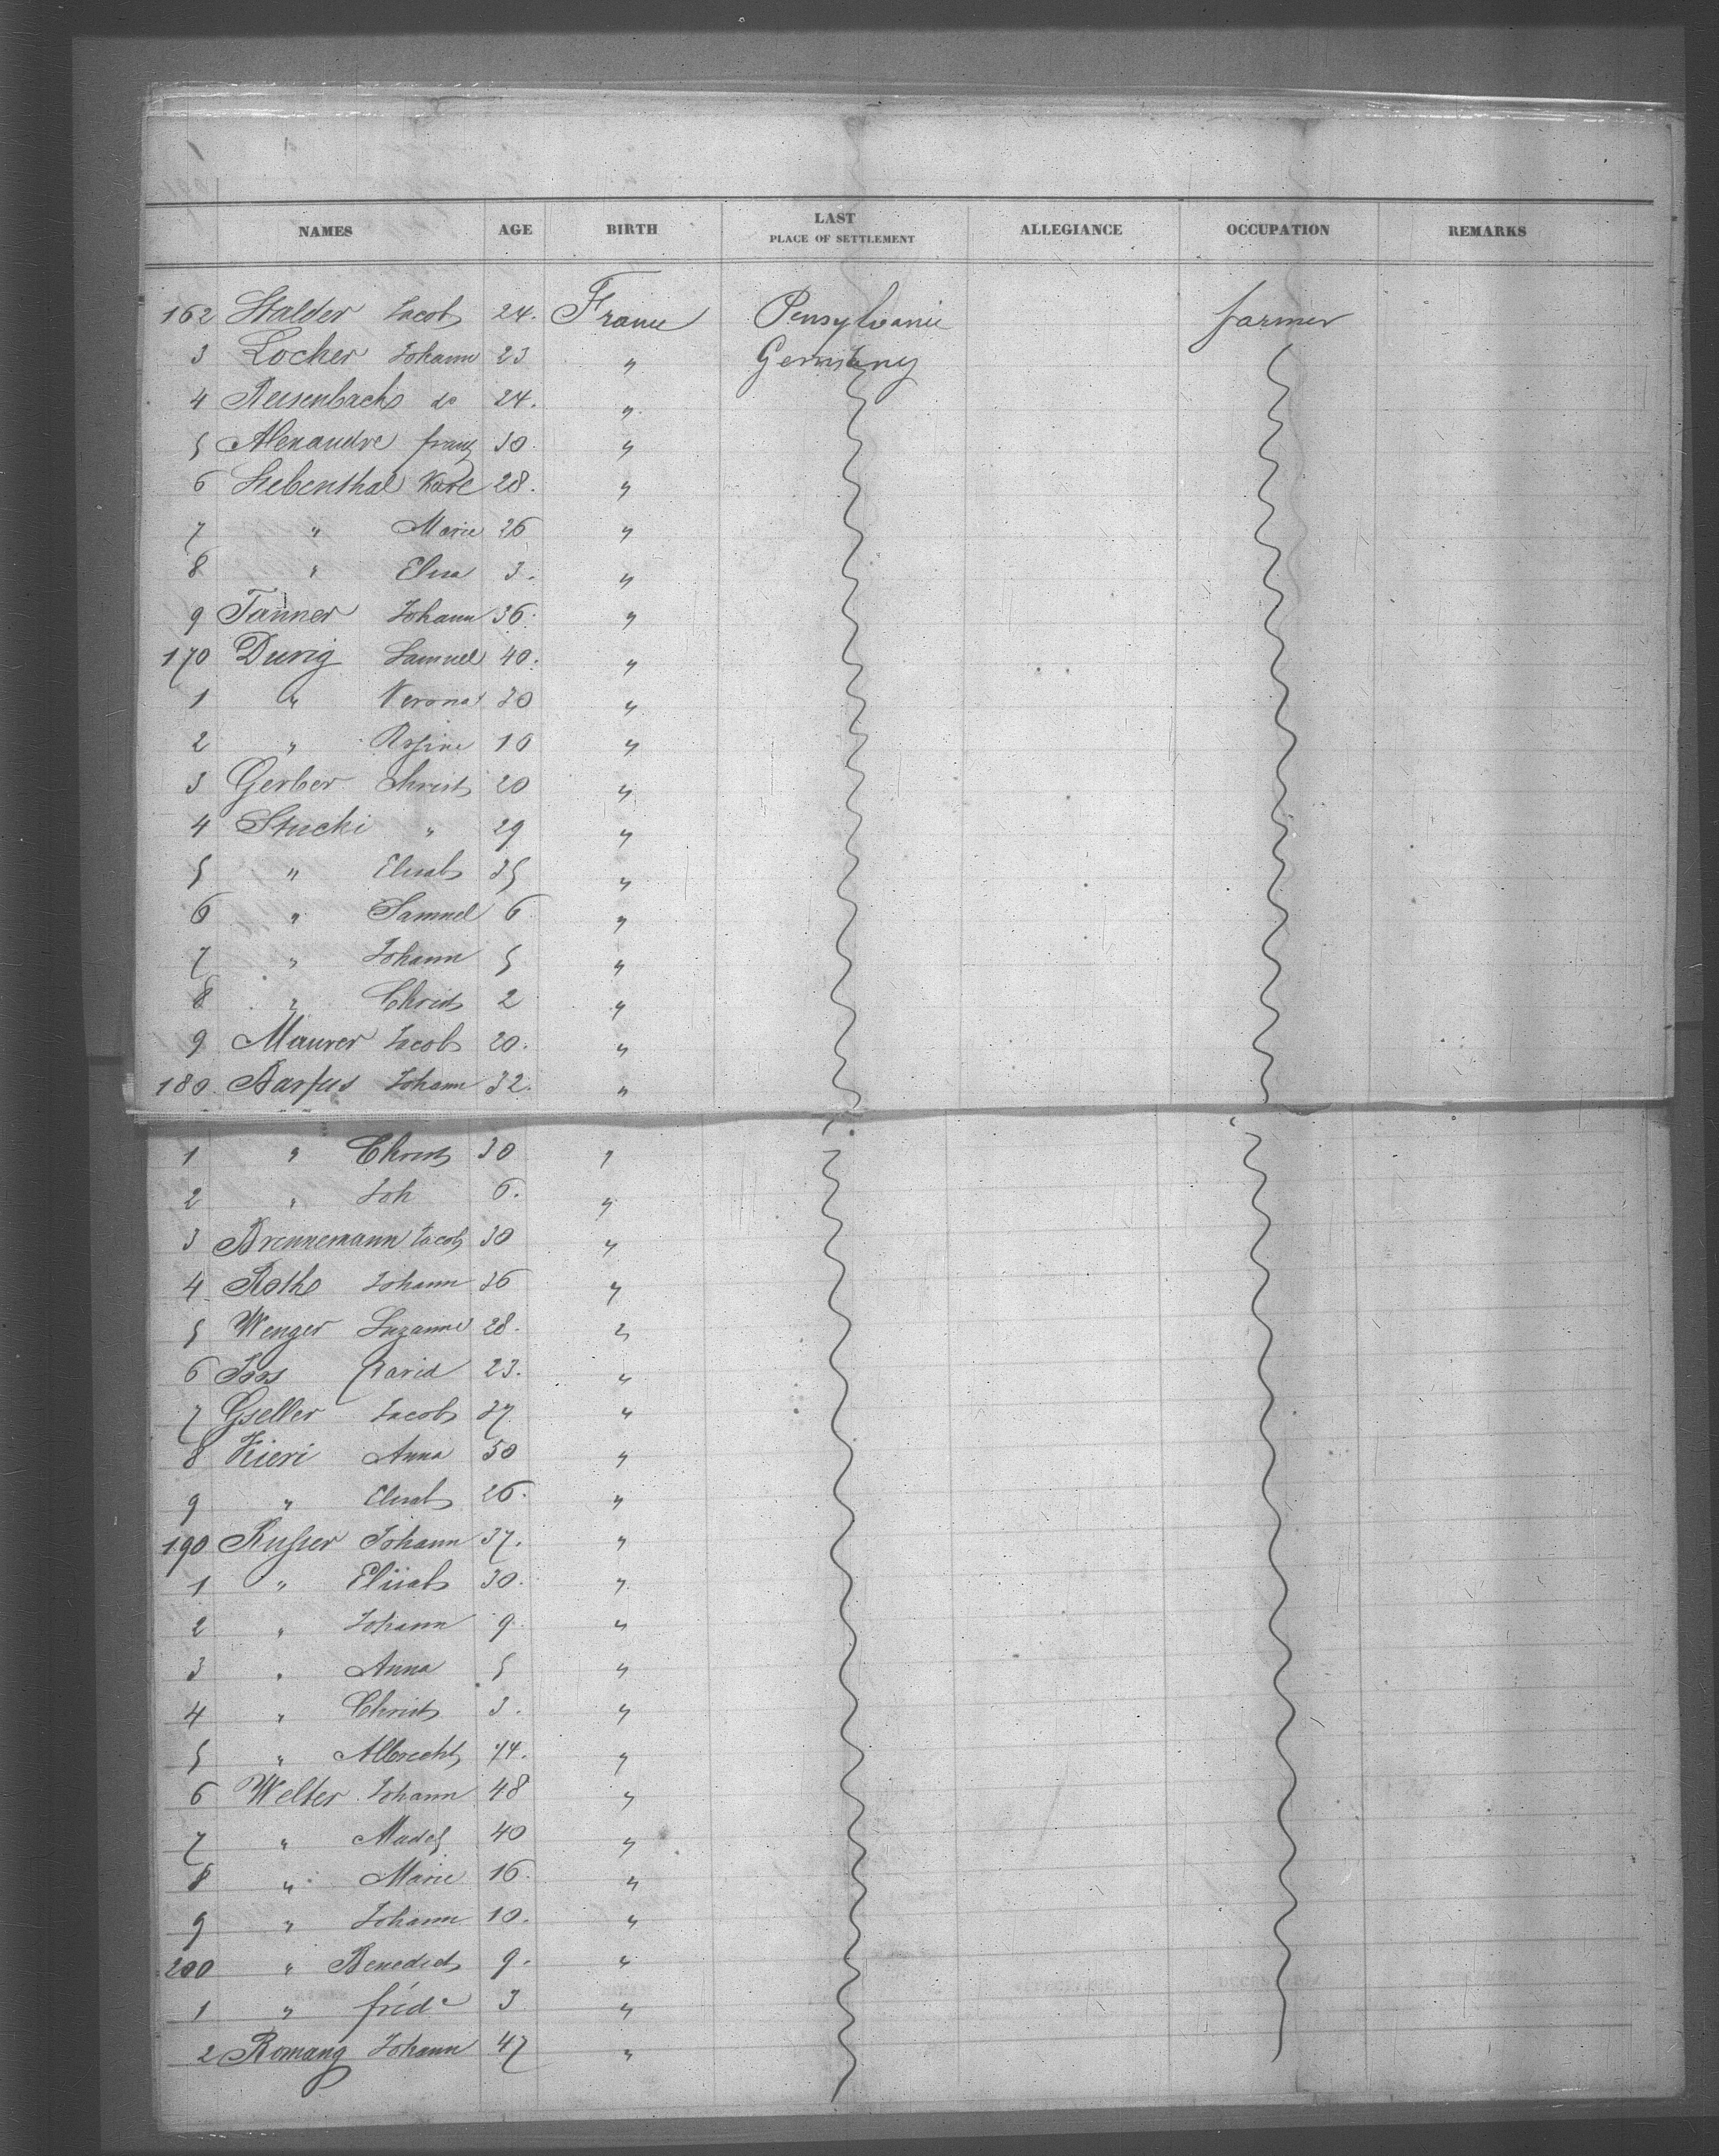 NAMES AGE BIRTH LAST PLACE OF SETTLEMENT ALLEGIANCE OCCUPATION REMARKS
162 Stalder Jacob 24. France Pensylvanie farmer
3 Locher Johann 23 " Germany
4 Reisenbach do 24. "
5 Alexandre franz 30 "
6 Siebenthal Karl 28. "
7 " Marie 26 "
8 " Elisa 3. "
9 Tanner Johann 36. "
170 Durig Samuel 40. "
1 " Verona 30 "
2 " Rosine 10 "
3 Gerber Christ 20 "
4 Stucki " 29 "
5 " Elisab 35 "
6 " Samuel 6 "
7 " Johann 5 "
8 " Christ 2 "
9 Maurer Jacob 20. "
180 Johann 32. "
1 " Christ 30 "
2 " Joh 6. "
3 Brennemann Jacob 30 "
4 Roth Johann 36 "
5 Wenger Suzanne 28. "
6 Joss David 23. "
7 Gseller Jacob 37 "
8 Kieri Anna 50 "
9 " Elisab 26. "
190 Russer Johann 37. "
1 " Elisab 30. "
2 " Johann 9. "
3 " Anna 5 "
4 " Christ 3. "
5 " Albrecht "
6 Welter Johann 48 "
7 " 40 "
8 " Marie 16 "
9 " Johann 10. "
200 " Benedict 9. "
1 " fréd 3 "
2 Romang Johann 47 "